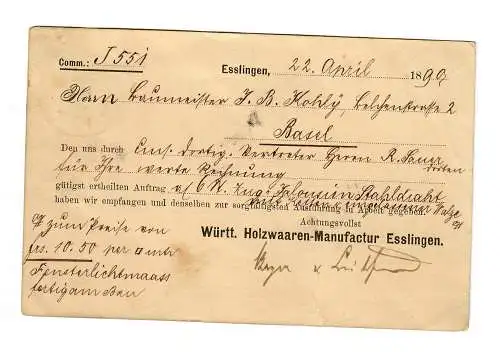 Comm.: J 551
Esslingen, 22. April 1890
Herrn Baumeister J. B. Kohly, Belchenstrasse 2
Basel
Den uns durch uns. dortig. Vertreter Herrn R. dorten
für Ihre werte Rechnung
gütigst ertheilten Auftrag a/ 6 Zug Stahldraht
haben wir empfangen und denselben zur sorgfältigsten Ausführung in Arbeit gegeben.
Achtungsvollst
Württ. Holzwaaren-Manufactur Esslingen.
zum Preise von
frs. 10.50 per mtr
Fensterlichtmaass
fertig am Bau